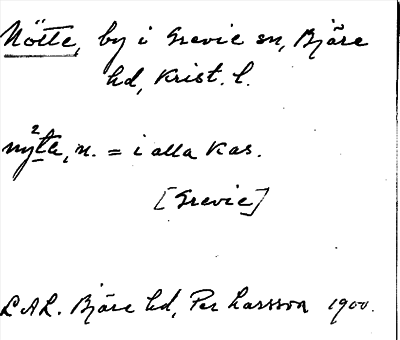 Nötte, by i Grevie sn, Bjäre
hd, Krist. l.
ny²tte, n. = i alla kas.
[Grevie]
LAL. Bjäre hd, Per Larsson 1900.